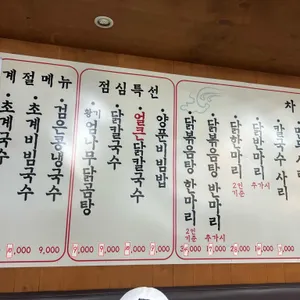 계절메뉴
·검은콩냉국수
·초계비빔국수
·초계국수
9,000
9,000
점심특선
·양푼비빔밥
·얼큰닭칼국수
·닭칼국수
·황기엄나무닭곰탕
9,000
9,000
차
·칼국수 사리
·닭한마리 추가시
·닭한마리 2인기준
·닭볶음탕 반마리 추가시
·닭볶음탕 한마리 2인기준